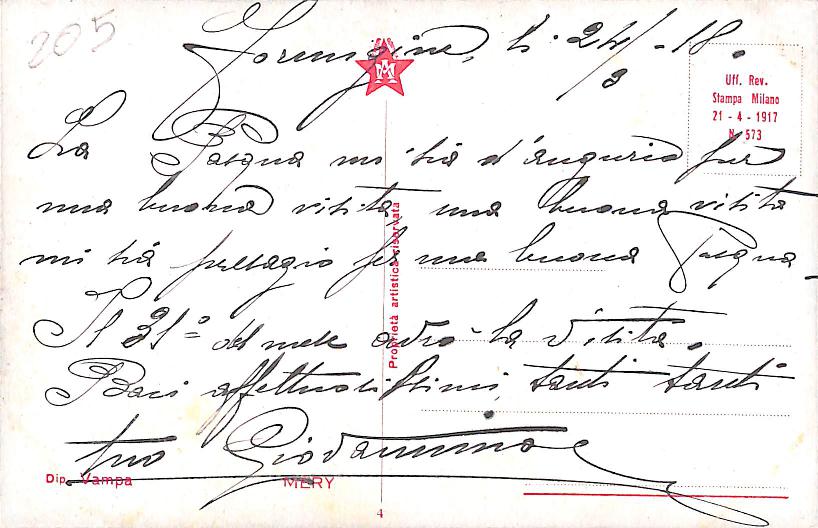 205
Lorenzine, li 24/3 - 18.
Uff. Rev.
Stampa Milano
21 - 4 - 1917
N. 573
La Pasqua mi sia d'augurio per
una buona visita una buona visita
mi sia presagio per una buona Pasqua
Il 31º del mese avrò la visita.
Baci affettuosissimi, tanti tanti
tuo Giovannino
Proprietà artistica riservata
Dip. Vampa
MERY
4